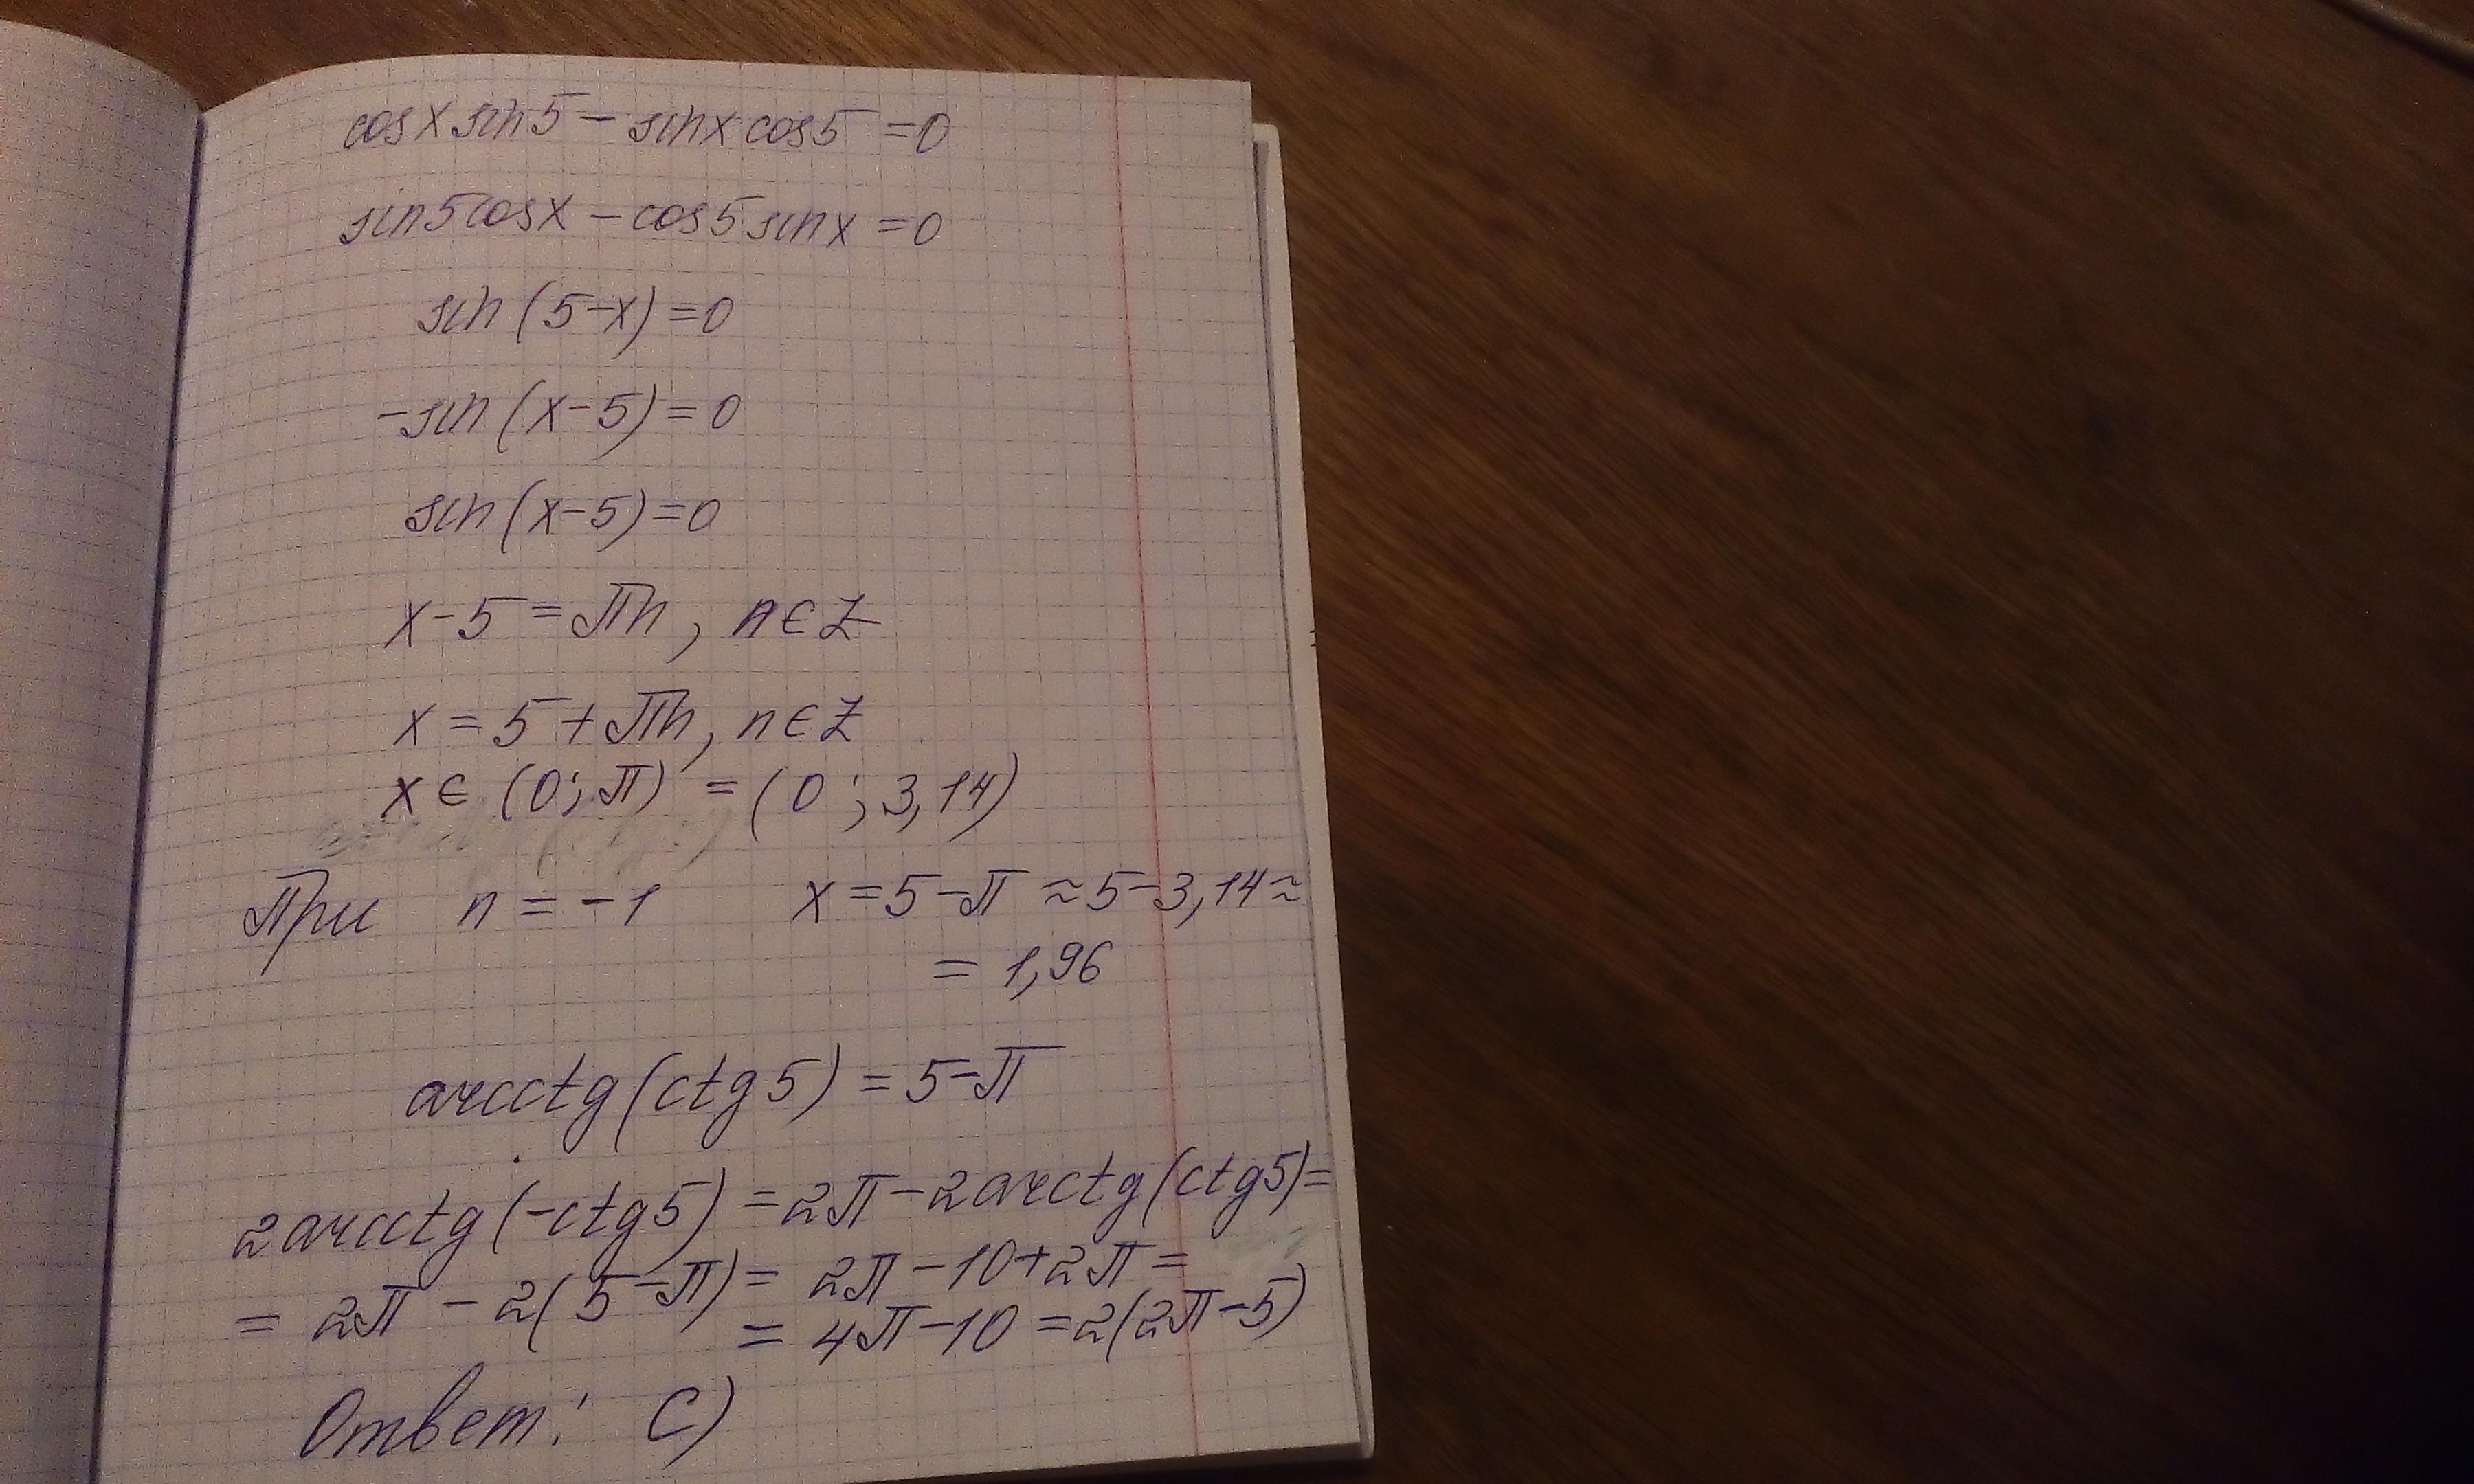 cosx sin5 - sinx cos5 = 0
sin5cosx - cos5 sinx = 0
sin(5-x) = 0
-sin(x-5) = 0
sin(x-5) = 0
x-5 = πn, n∈Z
x = 5+πn, n∈Z
x ∈ (0; π) = (0; 3,14)
При n = -1 x = 5-π ≈ 5-3,14 ≈
= 1,96
arcctg(ctg5) = 5-π
2arcctg(-ctg5) = 2π - 2arcctg(ctg5) =
= 2π - 2(5-π) = 2π - 10 + 2π =
= 4π - 10 = 2(2π-5)
Ответ: C)